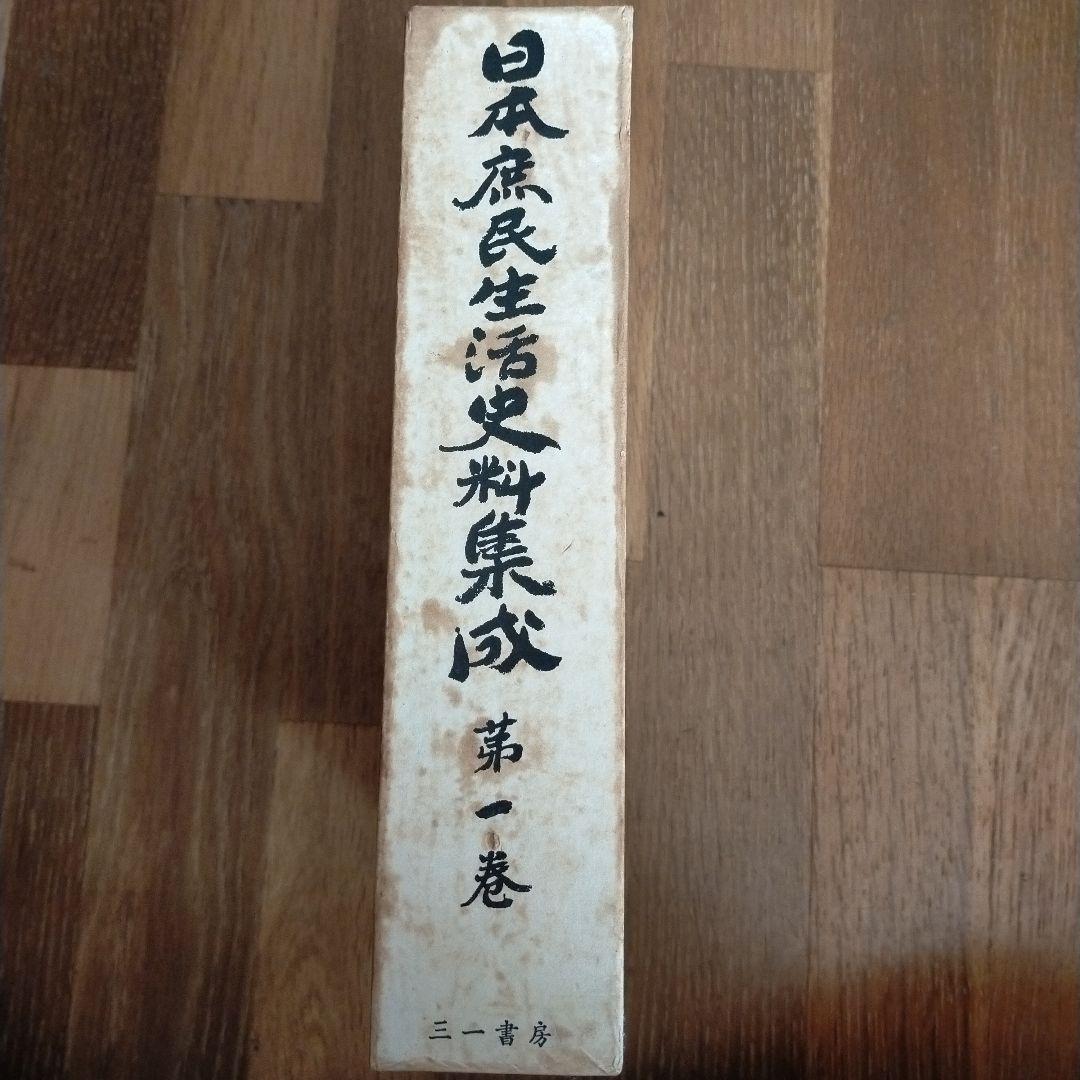 日本庶民生活史料集成
第一巻
三一書房